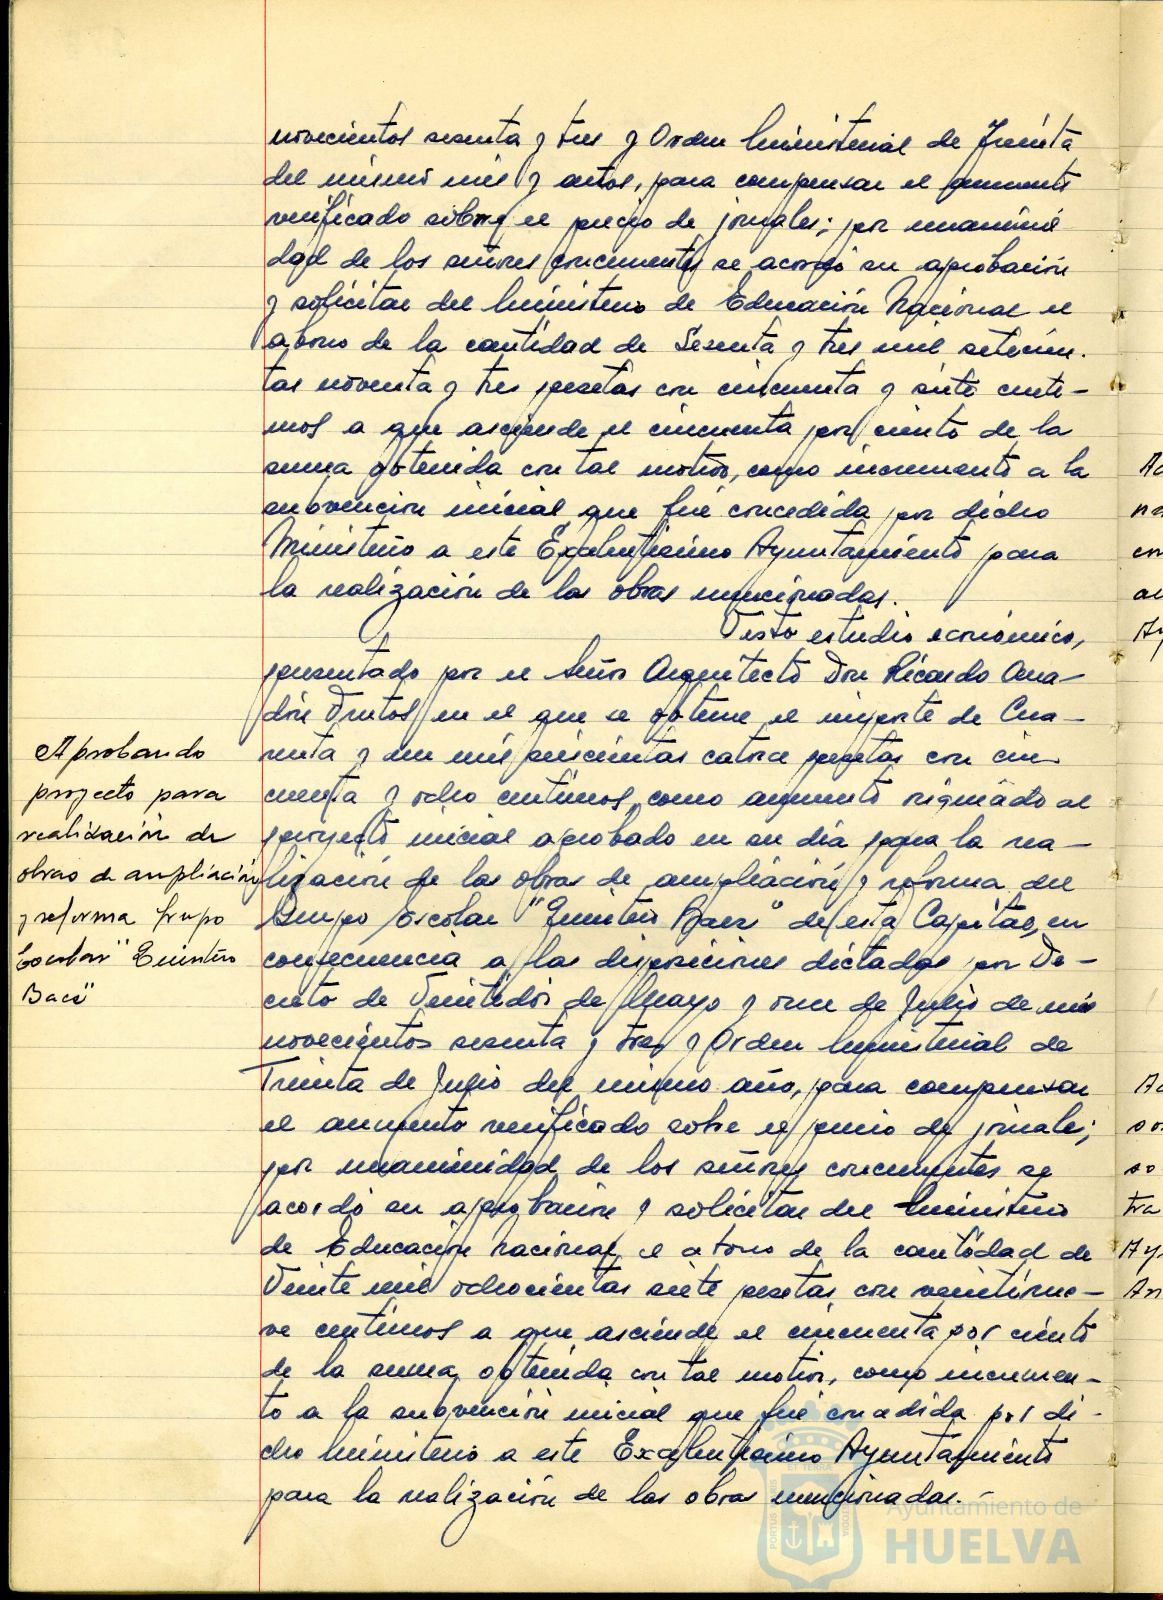 novecientos sesenta y tres y Orden Ministerial de Treinta
del mismo mes y años, para compensar el aumento
verificado sobre el precio de jornales; por unanimi
dad de los señores concurrentes se acordó su aprobación
y solicitar del Ministerio de Educación Nacional el
abono de la cantidad de Sesenta y tres mil setecien.
tas noventa y tres pesetas con cincuenta y siete cénti-
mos a que asciende el cincuenta por ciento de la
suma obtenida con tal motivo, como incremento a la
subvención inicial, que fué concedida por dicho
Ministerio a este Excelentísimo Ayuntamiento para
la realización de las obras mencionadas.
Visto estudio económico,
presentado por el Señor Arquitecto Don Ricardo Ana-
dón Frutos, en el que se obtiene el importe de Cua-
renta y un mil seiscientas catorce pesetas con cin-
cuenta y ocho céntimos, como aumento originado al
proyecto inicial aprobado en su día para la rea-
lización de las obras de ampliación y reforma del
Grupo Escolar "Quintero Baez" de esta Capital, en
consecuencia a las disposiciones dictadas por De-
creto de Veintidós de Mayo y once de Julio de mil
novecientos sesenta y tres y Orden Ministerial de
Treinta de Julio del mismo año, para compensar
el aumento verificado sobre el precio de jornales;
por unanimidad de los señores concurrentes se
acordó su aprobación y solicitar del Ministerio
de Educación Nacional, el abono de la cantidad de
Veinte mil ochocientas siete pesetas, con veintinue-
ve céntimos a que asciende el cincuenta por ciento
de la suma, obtenida con tal motivo, como incremen-
to a la subvención inicial que fué concedida por di-
cho Ministerio a este Excelentísimo Ayuntamiento
para la realización de las obras mencionadas.-
Aprobando
proyecto para
realización de
obras de ampliación
y reforma Grupo
Escolar "Quintero
Baez"
Ayuntamiento de
HUELVA